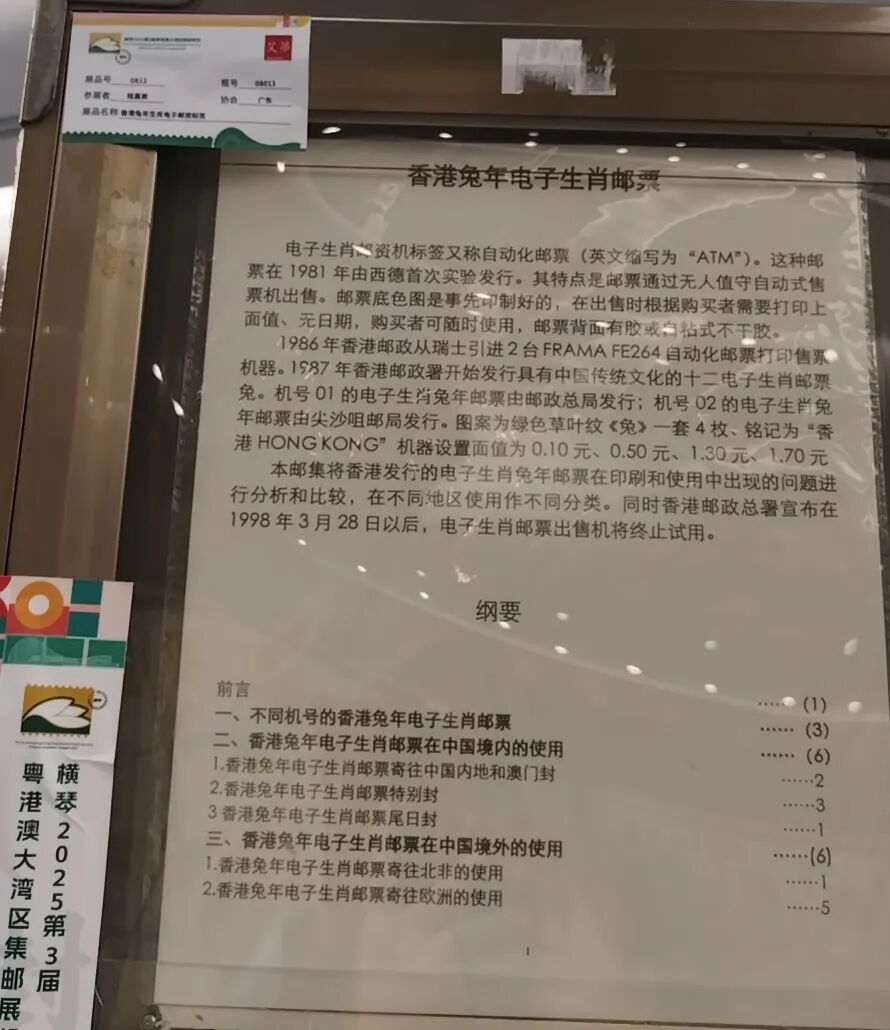 艾华
展品号 0813 框号 08013
参展者 协会 广东
展品名称 香港兔年生肖电子邮资标签
香港兔年电子生肖邮票
电子生肖邮资机标签又称自动化邮票（英文缩写为“ATM”）。这种邮
票在 1981 年由西德首次实验发行。其特点是邮票通过无人值守自动式售
票机出售。邮票底色图是事先印制好的，在出售时根据购买者需要打印上
面值、无日期，购买者可随时使用，邮票背面有胶或自粘式不干胶。
1986 年香港邮政从瑞士引进 2 台 FRAMA FE264 自动化邮票打印售票
机器。1987 年香港邮政署开始发行具有中国传统文化的十二电子生肖邮票
兔。机号 01 的电子生肖兔年邮票由邮政总局发行；机号 02 的电子生肖兔
年邮票由尖沙咀邮局发行。图案为绿色草叶纹《兔》一套 4 枚、铭记为“香
港 HONG KONG”机器设置面值为 0.10 元、0.50 元、1.30 元、1.70 元
本邮集将香港发行的电子生肖兔年邮票在印刷和使用中出现的问题进
行分析和比较，在不同地区使用作不同分类。同时香港邮政总署宣布在
1998 年 3 月 28 日以后，电子生肖邮票出售机将终止试用。
纲要
前言 ……（1）
一、不同机号的香港兔年电子生肖邮票 ……（3）
二、香港兔年电子生肖邮票在中国境内的使用 ……（6）
1.香港兔年电子生肖邮票寄往中国内地和澳门封 ……2
2.香港兔年电子生肖邮票特别封 ……3
3 香港兔年电子生肖邮票尾日封 ……1
三、香港兔年电子生肖邮票在中国境外的使用 ……(6)
1.香港兔年电子生肖邮票寄往北非的使用 ……1
2.香港兔年电子生肖邮票寄往欧洲的使用 ……5
1
横琴2025第3届
粤港澳大湾区集邮展